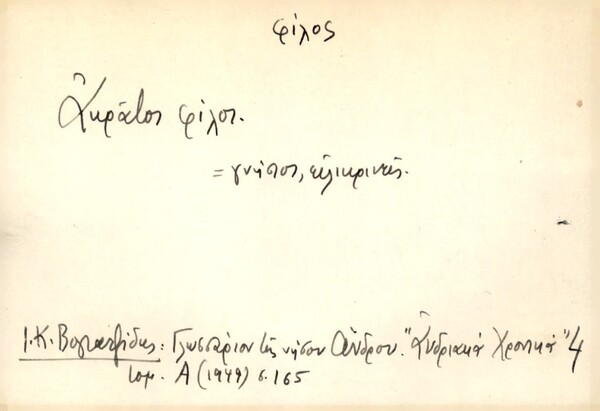 φίλος
Ἀκρᾶτος φίλος.
= γνήσιος, εἰλικρινής.
Ι. Κ. Βογιατζίδης: Γλωσσάριον τῆς νήσου Ἄνδρου. "Ἀνδριακὰ Χρονικὰ" 4
τομ. Α (1949) σ. 165